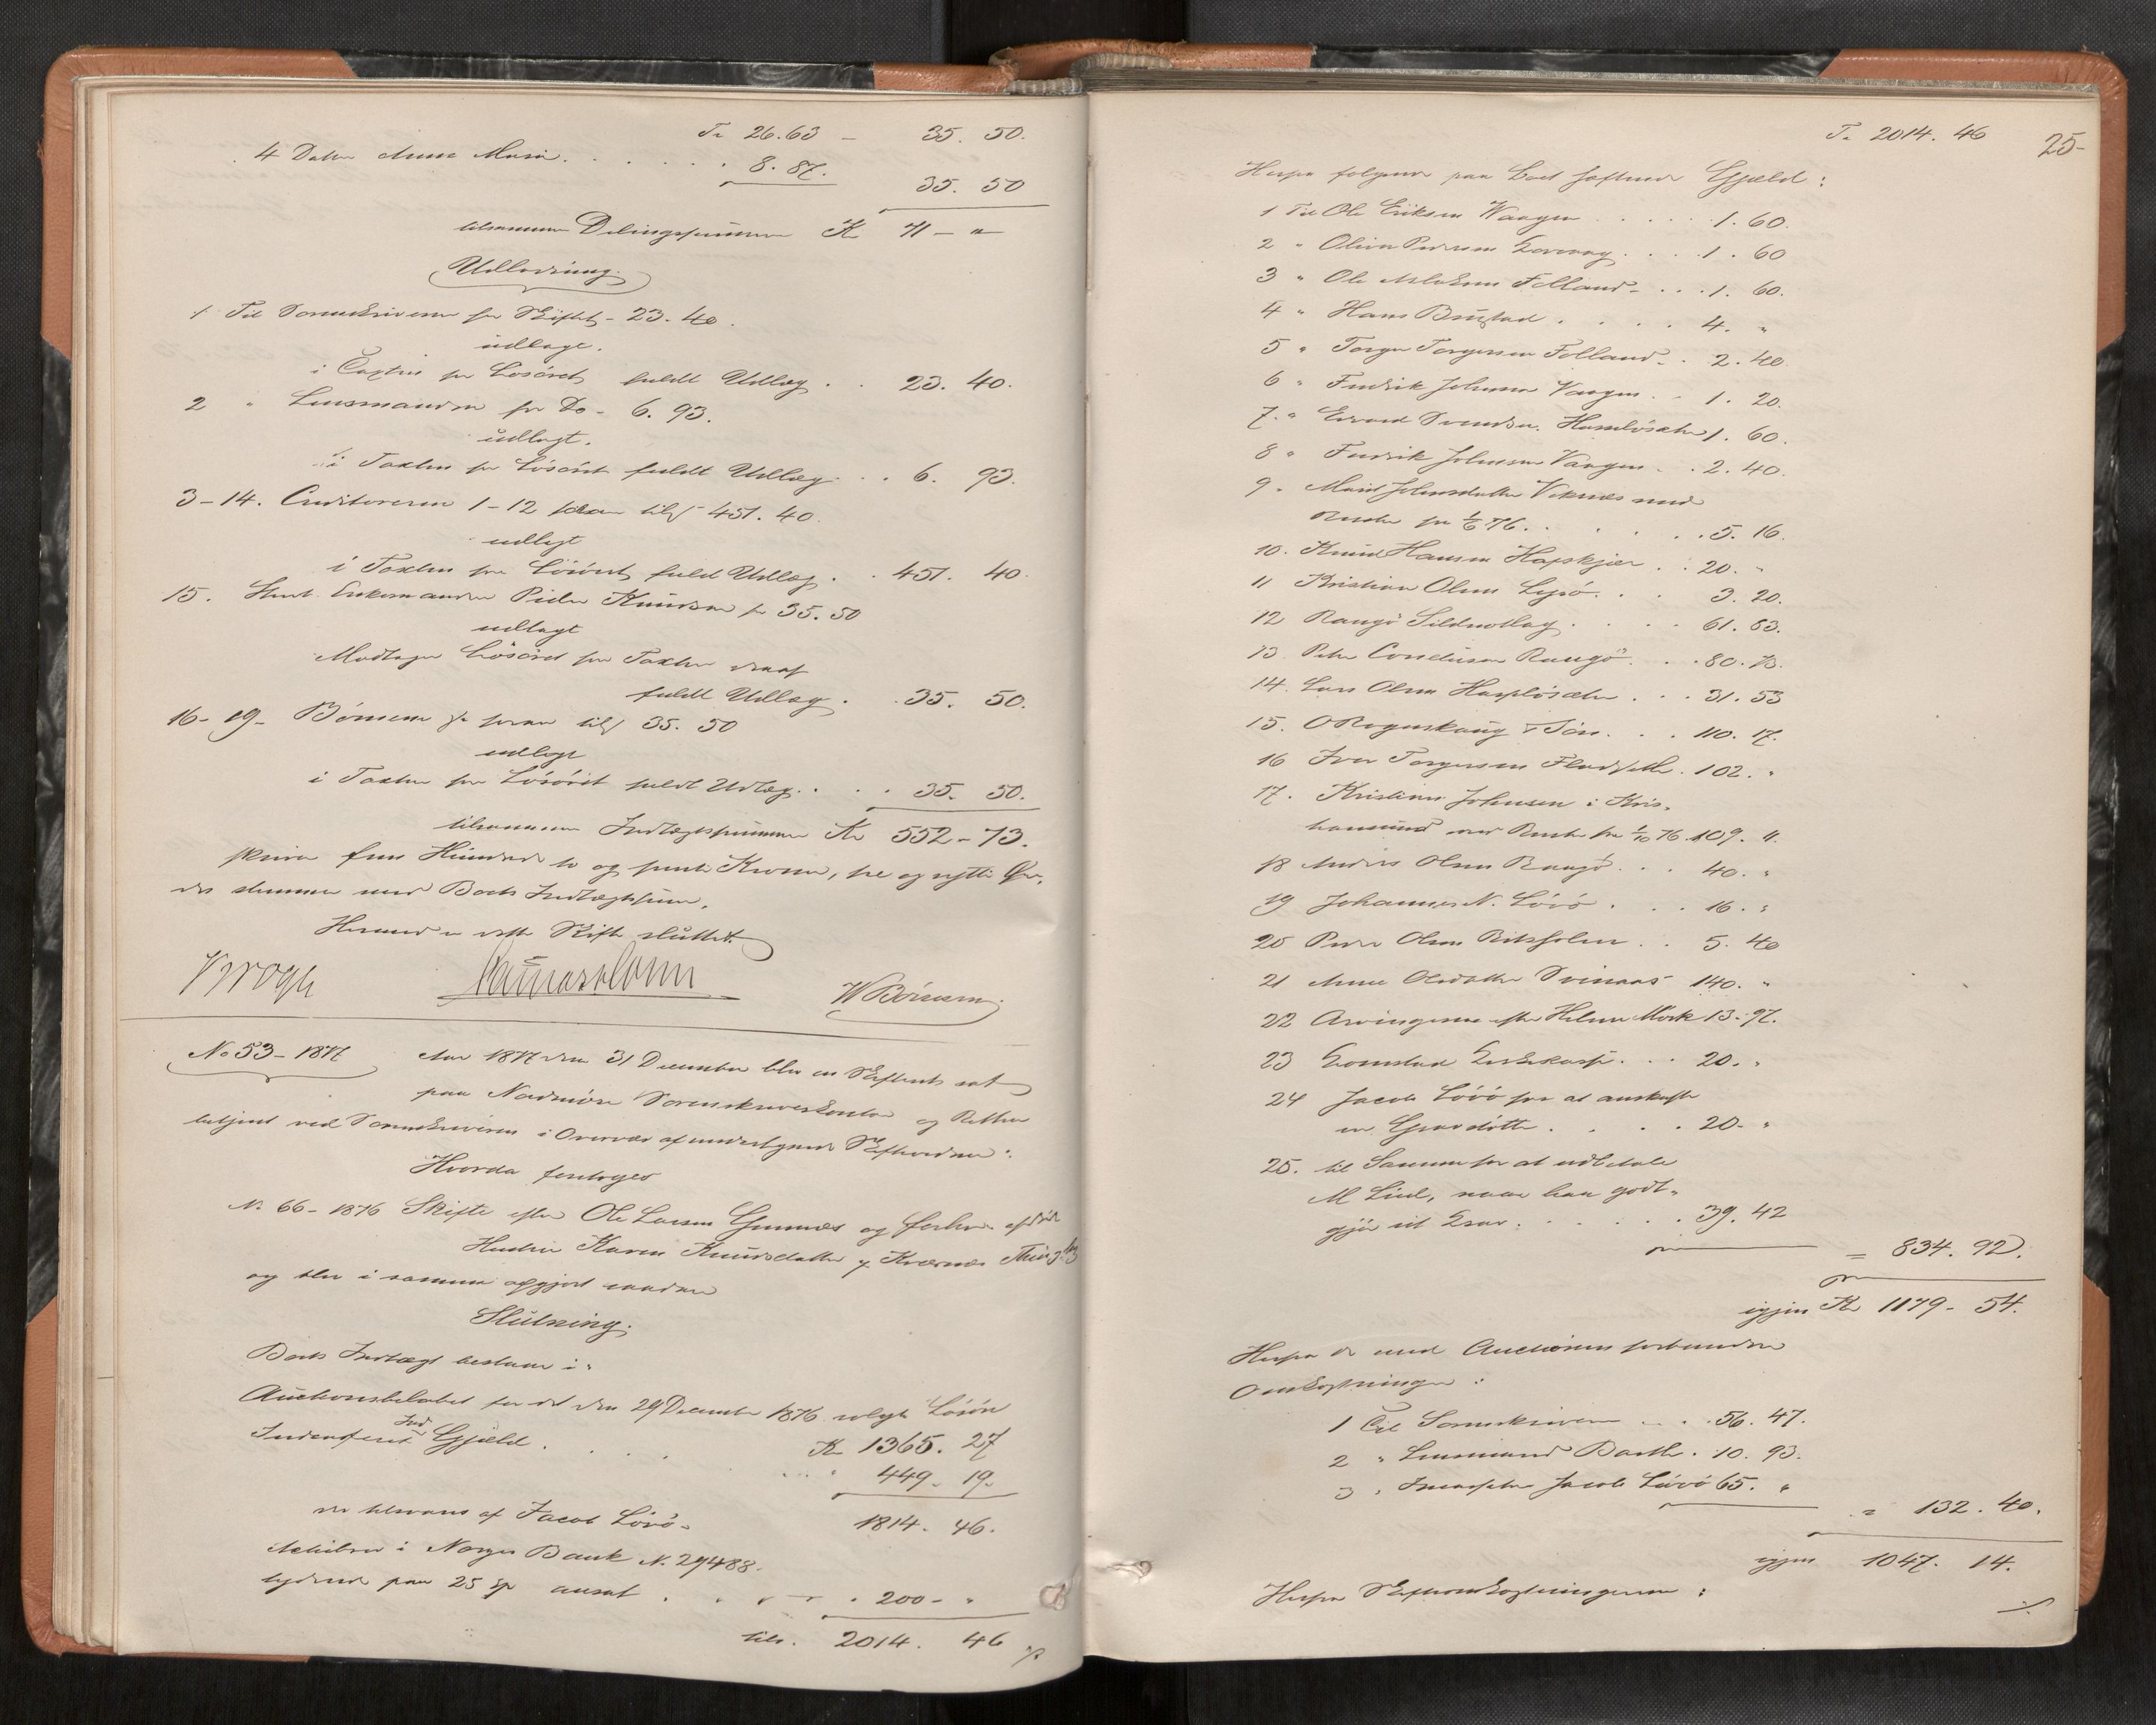 Tr 26.63 — 35. 50.
4 Datter Anne Maria . . . . . 8. 87.
35. 50
tilsammen Delingssummen Kr 71 – "
Udlodning.
1 Til Sorenskriveren for Skiftet – 23. 40.
udlagt.
i Taxten for Løsøret fuldt Udlæg . . 23. 40.
2 " Lensmanden for Do – 6. 93.
udlagt.
i Taxten for Løsøret fuldt Udlæg . . 6. 93.
3–14. Creditorerne 1–12 foran tils 451. 40.
udlagt
i Taxten for Løsøret fuldt Udlæg . . 451. 40.
15. Enkemanden Peder Knudsen for 35. 50
udlagt
Modtager Løsøret for Taxten deraf
fuldt Udlæg . . 35. 50.
16–19– Børnene foran tils 35. 50
udlagt
i Taxten for Løsøret fuldt Udlæg . . . 35. 50.
tilsammen Indtægtssummen Kr 552–73.
skriver fem Hundrede to og femti Kroner, tre og sytti Øre,
der stemmer med Boets Indtægtssum.
Hermed er dette Skifte sluttet.
Krogh
No 53–1877 Aar 1877 den 31 December blev en Skifteret sat
paa Nordmøre Sorenskriverkontor og Retten
betjent ved Sorenskriveren i Overvær af undertegnede Skiftevidner:
Hvorda foretoges
No 66–1876 Skifte efter Ole Larsen Gunnes og forhen afdøde
Hustru Karen Knudsdatter af Kvernes Thinglag
og blev i samme afgjort saadan
Slutning.
Boets Indtægt bestaar i:
Auctionsbeløbet for det den 29 December 1876 solgte Løsøre
Kr 1365. 27
Gjæld . . . . . " 449– 19.
der tilsvares af Jacob Løvø – 1814. 46.
i Norges Bank No 29488.
lydende paa 25 Sp ansat . . . . 200– "
tils. 2014. 46
Tr 2014. 46
25–
Herfra følgende paa Boet heftende Gjæld:
1 Til Ole Eriksen Vaagen . . . . . 1. 60.
2 " Oliver Pedersen . . . . 1. 60
3 " Ole Aslaksen Folland – . . . 1. 60.
4 " Hans Brustad . . . . 4. "
5 " Torger Torgersen Folland – . 2. 40
6 " Fredrik Johnsen Vaagen . . 1. 20.
7. " Edvard Svendsen 1. 60.
8 " Fredrik Johnsen Vaagen . . 2. 40.
9 " Marit Johnsdatter Veknes med
Renter fra 1/6 76. . . . . 5. 16.
10. Knud Hansen Hafskjær . . 20. "
11 Kristian Olsen . . . 3. 20.
12 Rangø Sildnotlag . . . . 61. 83.
13. Peder Corneliusen Rangø . . . 80. 73.
14. Lars Olsen . . . 31. 53
15. O Rogenskaug & Søn . . . 110. 17.
16 Iver Torgersen . 102. "
17. Kristian Johnsen i Kris-
tiansund med Renter fra 1/10 76. 109. 11.
18 Anders Olsen Rangø . . . 40. "
19 Johannes N. Løvø . . . 16. "
20 Peder Olsen . . 5. 40
21 Anne Olsdatter 140. "
22 Arvingerne efter Helene Mørk 13. 97.
23 . . . 20. "
24 Jacob Løvø for at anskaffe
en Gravstøtte . . . . 20. "
25. til Samme for at udbetale
M Lied, naar han godt-
gjør sit Krav . . . . . 39. 42
= 834. 92.
igjen Kr 1179– 54.
Herfra de med Auctionen forbundne
Omkostninger:
1 Til Sorenskriveren . . . 56. 47.
2 " Lensmand Barth . 10. 93.
3 " Incassator Jacob Løvø 65. "
= 132. 40.
igjen 1047. 14.
Herfra Skifteomkostningerne: